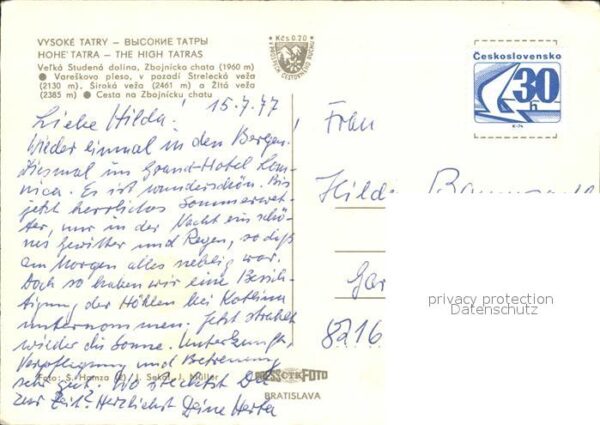 VYSOKÉ TATRY – ВЫСОКИЕ ТАТРЫ
HOHE TATRA – THE HIGH TATRAS
Veľká Studená dolina, Zbojnícka chata (1960 m)
● Vareškovo pleso, v pozadí Strelecká veža
(2130 m), Široká veža (2461 m) a Žltá veža
(2385 m) ● Cesta na Zbojnícku chatu
Kčs 0,20
Československo
30 h
15.7.77
Liebe Hilda!
Wieder einmal in den Bergen.
Diesmal im Grand-Hotel Lom-
nica. Es ist wunderschön. Bis
jetzt herrliches Sommerwet-
ter, nur in der Nacht ein schö-
nes Gewitter und Regen, so daß
am Morgen alles neblig war.
Doch so haben wir eine Besich-
tigung der Höhlen bei
unternommen. Jetzt strahlt
wieder die Sonne. Unterkunft,
Verpflegung und Betreuung
sehr gut. Wo steckst Du
zur Zeit? Herzlichst Deine Herta
Frau
Hilde
8216
privacy protection
Datenschutz
Foto: Š. Hamza J. Sekal, J. Müller
PRESSFOTO
BRATISLAVA